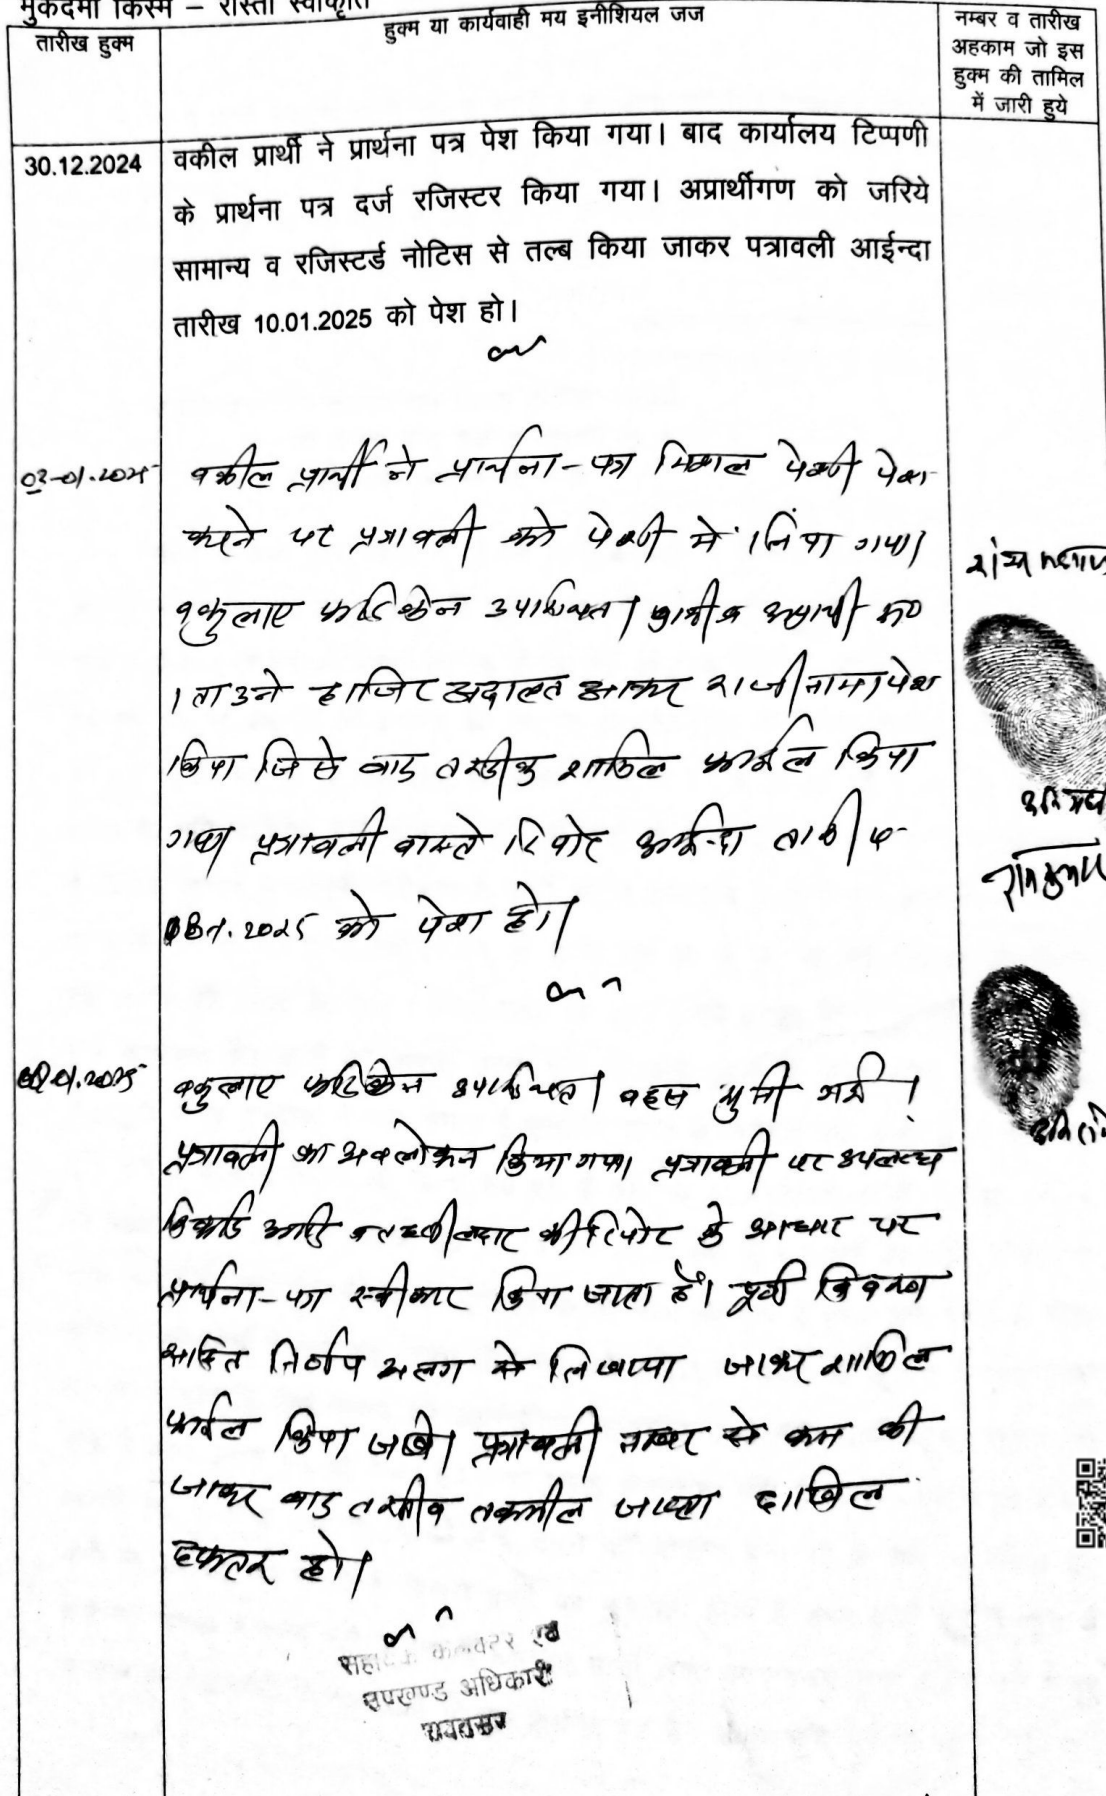 मुकदमा किस्म – रास्ता स्वीकृति
तारीख हुक्म
हुक्म या कार्यवाही मय इनीशियल जज
नम्बर व तारीख
अहकाम जो इस
हुक्म की तामिल
में जारी हुये
30.12.2024
वकील प्रार्थी ने प्रार्थना पत्र पेश किया गया। बाद कार्यालय टिप्पणी
के प्रार्थना पत्र दर्ज रजिस्टर किया गया। अप्रार्थीगण को जरिये
सामान्य व रजिस्टर्ड नोटिस से तल्ब किया जाकर पत्रावली आईन्दा
तारीख 10.01.2025 को पेश हो।
03-01-2025
वकील प्रार्थी ने प्रार्थना-पत्र मिसाल पेशी पेश
करने पर पत्रावली को पेशी में लिया गया।
वकुलाए फरिकेन उपस्थित।
हाजिर अदालत आकर राजीनामा पेश
किया जिसे बाद तस्दीक शामिल फाईल किया
गया पत्रावली वास्ते रिपोर्ट आईन्दा तारीख
को पेश हो।
वकुलाए फरिकेन उपस्थित। बहस सुनी गई।
पत्रावली का अवलोकन किया गया। पत्रावली पर उपलब्ध
रिकार्ड आदि व तहसीलदार की रिपोर्ट के आधार पर
प्रार्थना-पत्र स्वीकार किया जाता है। पूर्ण विवरण
सहित निर्णय अलग से लिखाया जाकर शामिल
फाईल किया जावे। पत्रावली नम्बर से कम की
जाकर बाद तरतीब तकमील जाब्ता दाखिल
दफ्तर हो।
रामकुमार
सहायक कलक्टर एवं
उपखण्ड अधिकारी
रावतसर